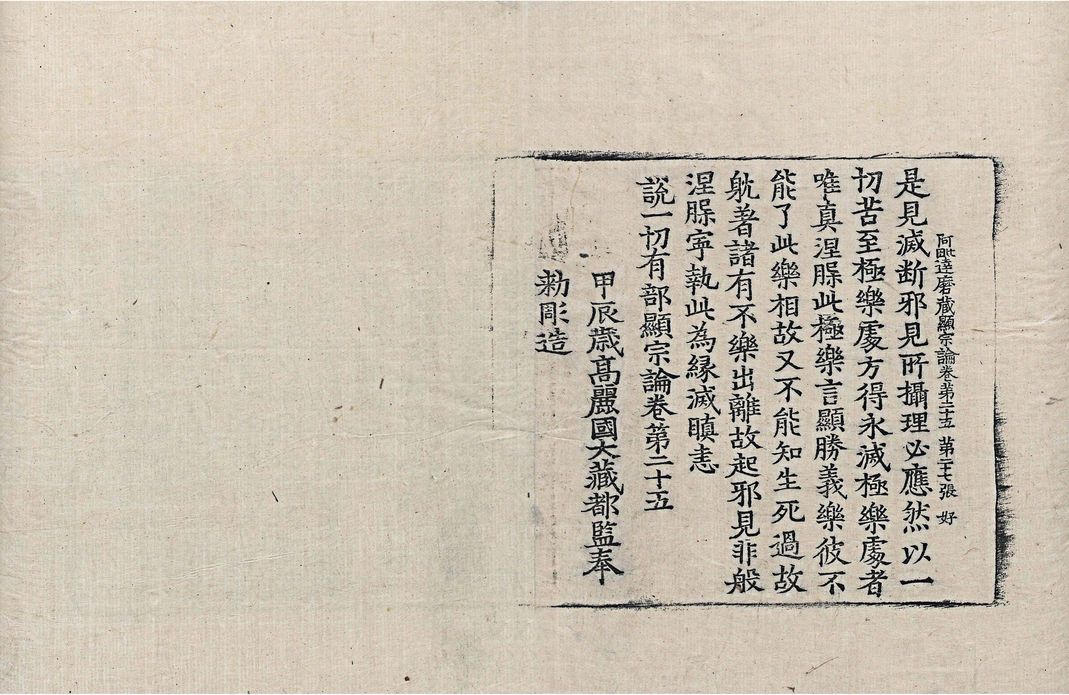 阿毗達磨藏顯宗論卷第二十五 第二十七張 好
是見滅斷邪見所攝理必應然以一
切苦至極樂處方得永滅極樂處者
唯真涅槃此極樂言顯勝義樂彼不
能了此樂相故又不能知生死過故
躭著諸有不樂出離故起邪見非般
涅槃寧執此為緣滅瞋恚
說一切有部顯宗論卷第二十五
甲辰歲高麗國大藏都監奉
勅彫造